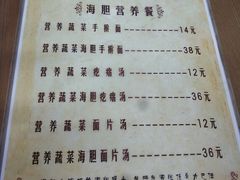 海胆营养餐
营养蔬菜手擀面----------14元
营养蔬菜海胆手擀面--------38元
营养蔬菜疙瘩汤----------12元
营养蔬菜海胆疙瘩汤--------36元
营养蔬菜面片汤----------12元
营养蔬菜海胆面片汤--------36元